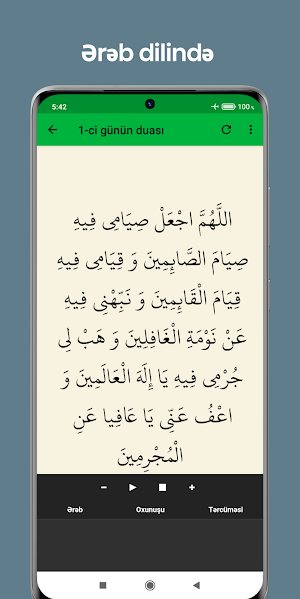 Ərəb dilində
5:42
100
1-ci günün duası
اللَّهُمَّ اجْعَلْ صِيَامِى فِيهِ
صِيَامَ الصَّايِمِينَ وَ قِيَامِى فِيهِ
قِيَامَ الْقَايِمِينَ وَ نَبِّهْنِى فِيهِ
عَنْ نَوْمَةِ الْغَافِلِينَ وَ هَبْ لِى
جُرْمِى فِيهِ يَا إِلَهَ الْعَالَمِينَ وَ
اعْفُ عَنِّى يَا عَافِيا عَنِ
الْمُجْرِمِينَ
Ərəb Oxunuşu Tərcüməsi